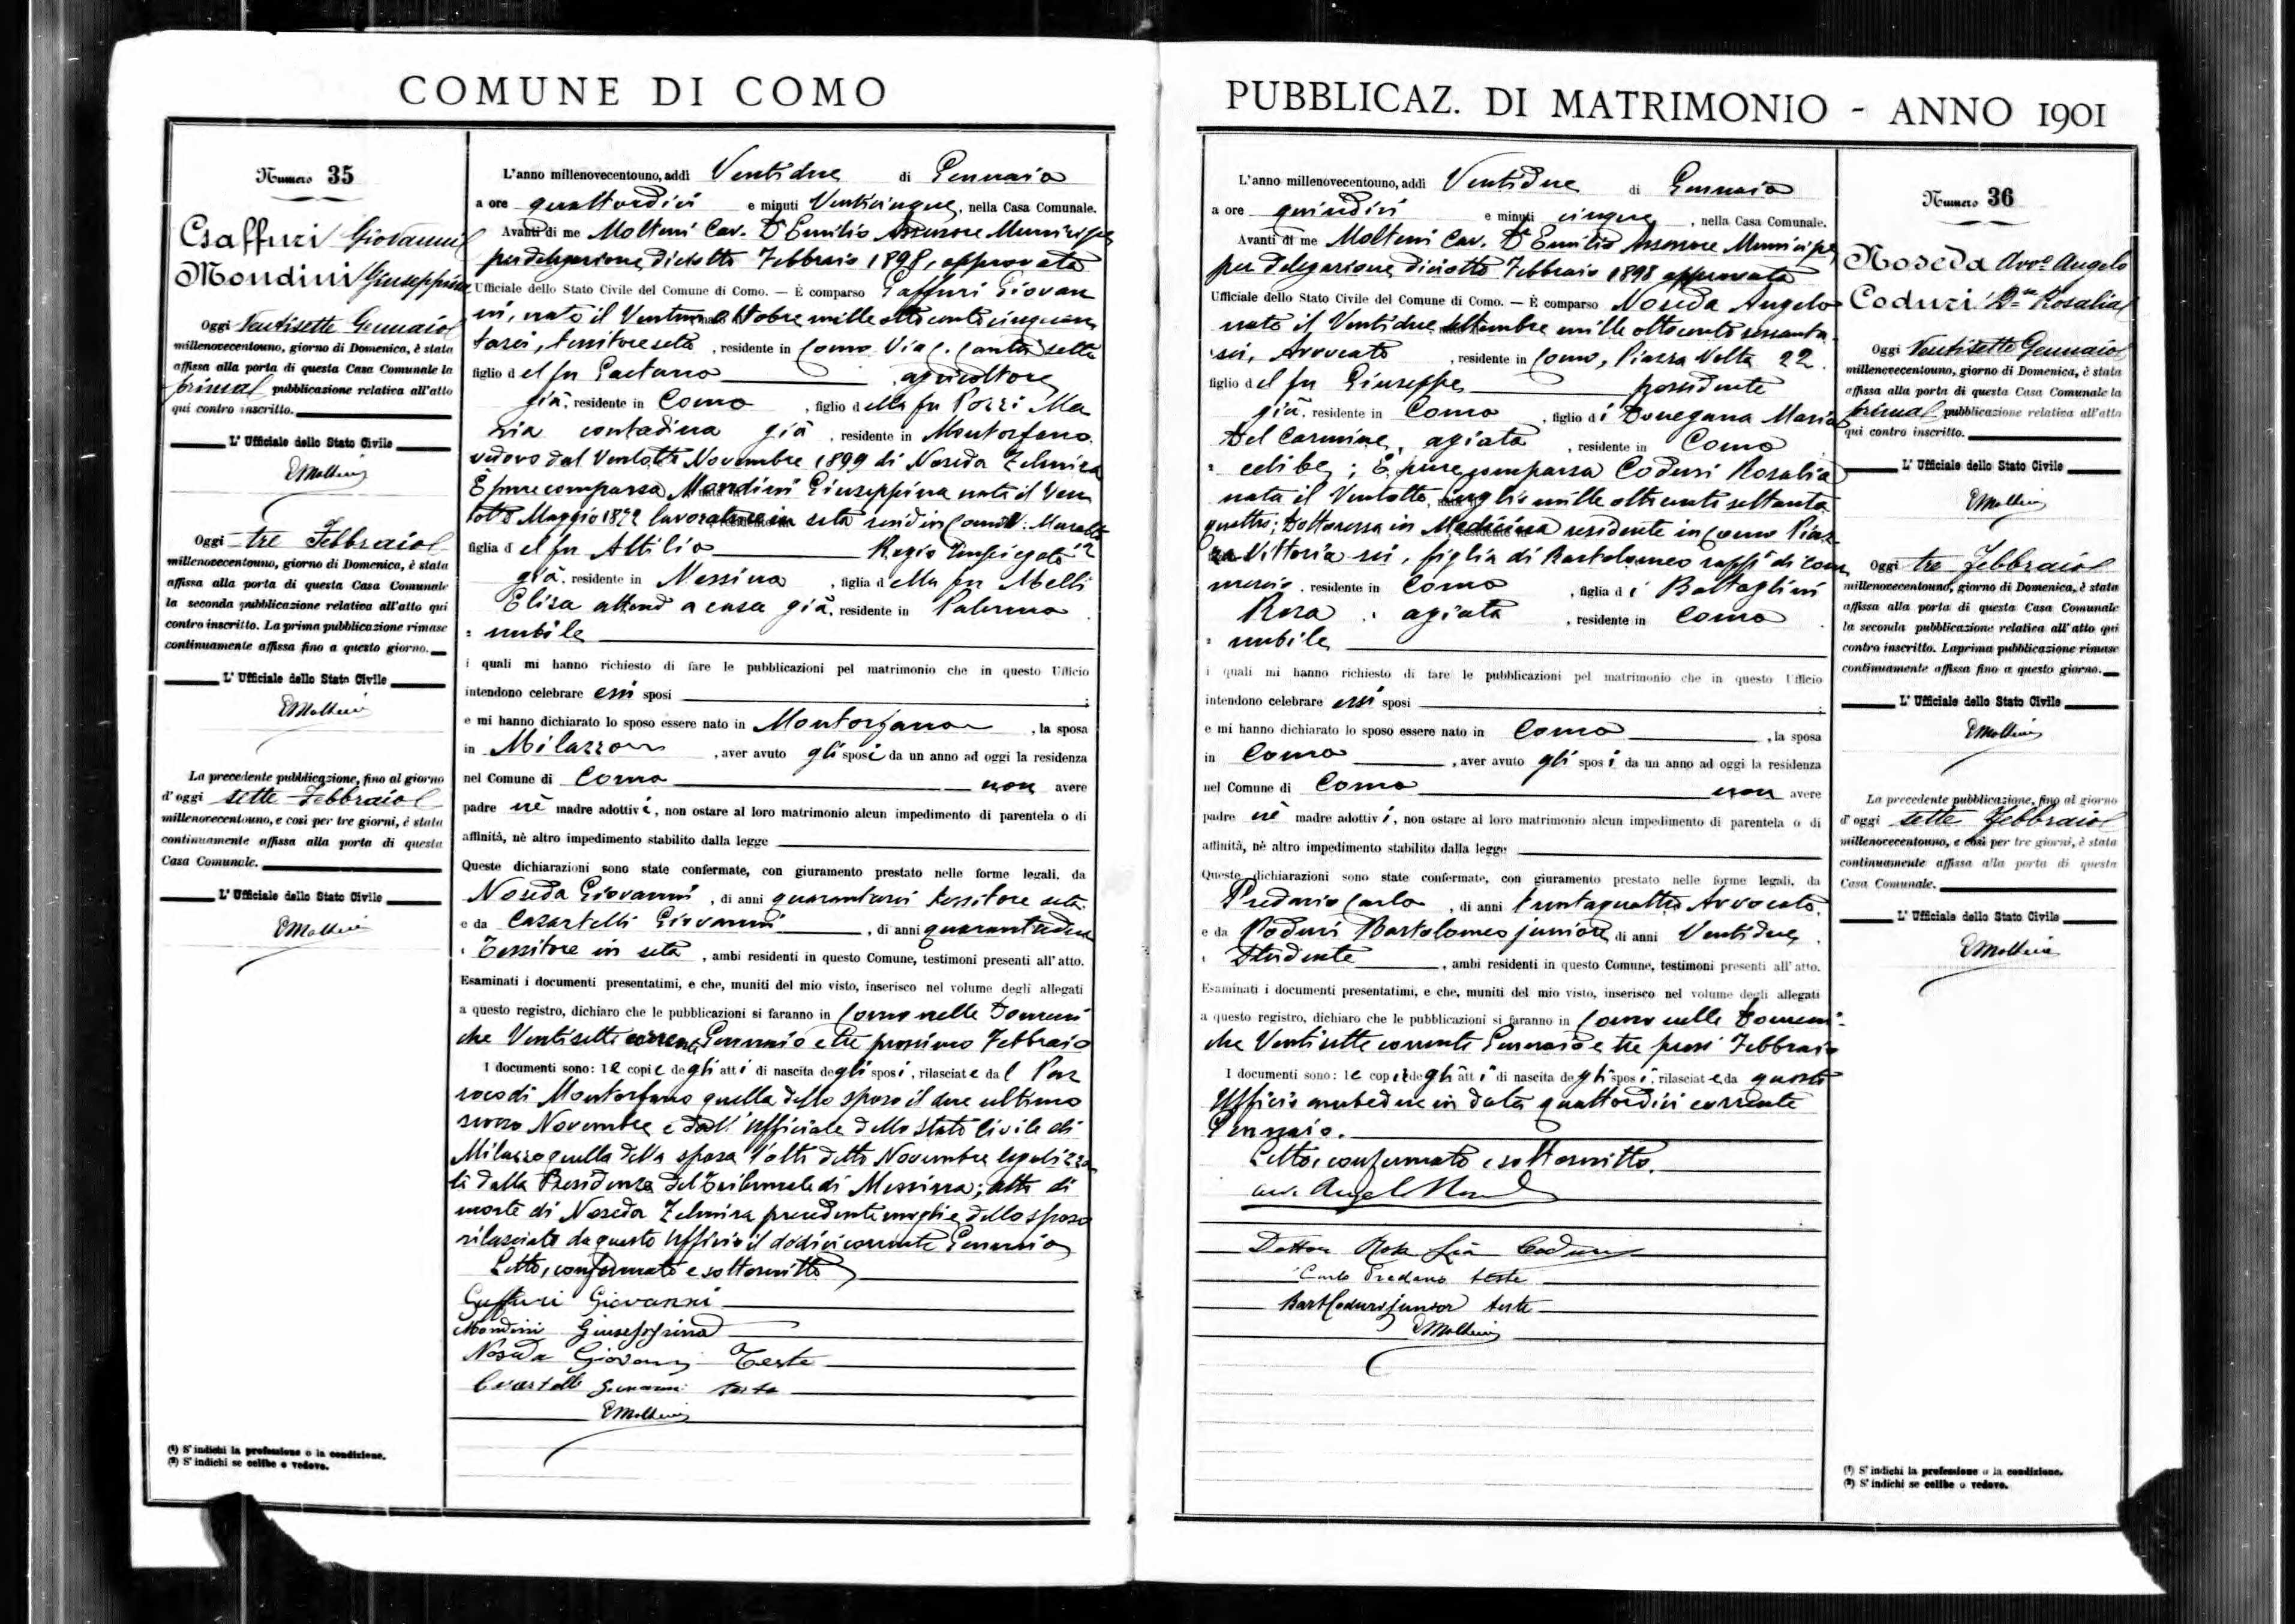 COMUNE DI COMO
Numero 35
Gaffuri Giovanni
Mondini Giuseppina
Oggi Ventisette Gennaio
millenovecentouno, giorno di Domenica, è stata
affissa alla porta di questa Casa Comunale la
prima pubblicazione relativa all'atto
qui contro inscritto.
L'Ufficiale dello Stato Civile
EMolteni
Oggi tre Febbraio
millenovecentouno, giorno di Domenica, è stata
affissa alla porta di questa Casa Comunale
la seconda pubblicazione relativa all'atto qui
contro inscritto. La prima pubblicazione rimase
continuamente affissa fino a questo giorno.
L'Ufficiale dello Stato Civile
EMolteni
La precedente pubblicazione, fino al giorno
d'oggi sette Febbraio
millenovecentouno, e così per tre giorni, è stata
continuamente affissa alla porta di questa
Casa Comunale.
L'Ufficiale dello Stato Civile
EMolteni
(1) S'indichi la professione o la condizione.
(2) S'indichi se celibe o vedovo.
L'anno millenovecentouno, addì Ventidue di Gennaio
a ore quattordici e minuti Venticinque, nella Casa Comunale.
Avanti di me Molteni Cav. Dr Emilio Assessore Municipe
per delegazione diciotto Febbraio 1898, approvata
Ufficiale dello Stato Civile del Comune di Como. — È comparso Gaffuri Giovan
ni, nato il Ventun ottobre mille ottocento cinquan
tasei, tessitore seta, residente in Como Via C. Cantù sette
figlio del fu Gaetano agricoltore
già, residente in Como, figlio della fu Pozzi Ma
ria contadina già, residente in Montorfano
vedovo dal Ventotto Novembre 1899 di Noseda Zelmira
È pure comparsa Mondini Giuseppina nata il Ven
totto Maggio 1872 lavoratrice in seta resid in Como V.
figlia del fu Attilio Regio Impiegato
già, residente in Messina, figlia della fu Abelli
Elisa attend a casa già, residente in Palermo
nubile
i quali mi hanno richiesto di fare le pubblicazioni pel matrimonio che in questo Ufficio
intendono celebrare essi sposi
e mi hanno dichiarato lo sposo essere nato in Montorfano, la sposa
in Milazzo, aver avuto gli sposi da un anno ad oggi la residenza
nel Comune di Como non avere
padre nè madre adottivi, non ostare al loro matrimonio alcun impedimento di parentela o di
affinità, nè altro impedimento stabilito dalla legge
Queste dichiarazioni sono state confermate, con giuramento prestato nelle forme legali, da
Noseda Giovanni, di anni quarantasei tessitore seta
e da Casartelli Giovanni, di anni quarantadue
Tessitore in seta, ambi residenti in questo Comune, testimoni presenti all'atto.
Esaminati i documenti presentatimi, e che, muniti del mio visto, inserisco nel volume degli allegati
a questo registro, dichiaro che le pubblicazioni si faranno in Como nelle Domeni
che Ventisette corrente Gennaio e tre prossimo Febbraio
I documenti sono: le copie degli atti di nascita degli sposi, rilasciate dal Par
roco di Montorfano quella dello sposo il due ultimo
scorso Novembre e dall'Ufficiale dello stato Civile di
Milazzo quella della sposa l'otto detto Novembre legalizza
ti dalla Presidenza del Tribunale di Messina; atto di
morte di Noseda Zelmira precedente moglie dello sposo
rilasciato da questo Ufficio il dodici corrente Gennaio
Letto, confermato e sottoscritto
Gaffuri Giovanni
Mondini Giuseppina
Noseda Giovanni Teste
Casartelli Giovanni teste
EMolteni
PUBBLICAZ. DI MATRIMONIO - ANNO 1901
L'anno millenovecentouno, addì Ventidue di Gennaio
a ore quindici e minuti cinque, nella Casa Comunale.
Avanti di me Molteni Cav. Dr Emilio Assessore Municipe
per delegazione diciotto Febbraio 1898 approvata
Ufficiale dello Stato Civile del Comune di Como. — È comparso Noseda Angelo
nato il Ventidue settembre mille ottocento sessanta
sei, Avvocato, residente in Como, Piazza Volta 22.
figlio del fu Giuseppe possidente
già, residente in Como, figlio di Donegana Maria
Del Carmine, agiata, residente in Como
celibe; È pure comparsa Coduri Rosalia
nata il Ventotto luglio mille ottocento settanta
quattro; Dottoressa in Medicina residente in Como Piaz
za Vittoria sei, figlia di Bartolomeo rapp. di com
mercio, residente in Como, figlia di Battaglini
Rosa agiata, residente in Como
nubile
i quali mi hanno richiesto di fare le pubblicazioni pel matrimonio che in questo Ufficio
intendono celebrare essi sposi
e mi hanno dichiarato lo sposo essere nato in Como, la sposa
in Como, aver avuto gli sposi da un anno ad oggi la residenza
nel Comune di Como non avere
padre nè madre adottivi, non ostare al loro matrimonio alcun impedimento di parentela o di
affinità, nè altro impedimento stabilito dalla legge
Queste dichiarazioni sono state confermate, con giuramento prestato nelle forme legali, da
Predario Carlo, di anni trentaquattro Avvocato
e da Coduri Bartolomeo junior, di anni Ventidue
Studente, ambi residenti in questo Comune, testimoni presenti all'atto.
Esaminati i documenti presentatimi, e che, muniti del mio visto, inserisco nel volume degli allegati
a questo registro, dichiaro che le pubblicazioni si faranno in Como nelle Domeni-
che Ventisette corrente Gennaio e tre pross Febbraio
I documenti sono: le copie degli atti di nascita degli sposi, rilasciate da questo
Ufficio ambedue in data quattordici corrente
Gennaio.
Letto, confermato e sottoscritto.
avv. Angelo Noseda
Dottor Rosalia Coduri
Carlo Predario teste
Bart Coduri junior teste
EMolteni
Numero 36
Noseda Avvo Angelo
Coduri Dra Rosalia
Oggi Ventisette Gennaio
millenovecentouno, giorno di Domenica, è stata
affissa alla porta di questa Casa Comunale la
prima pubblicazione relativa all'atto
qui contro inscritto.
L'Ufficiale dello Stato Civile
EMolteni
Oggi tre Febbraio
millenovecentouno, giorno di Domenica, è stata
affissa alla porta di questa Casa Comunale
la seconda pubblicazione relativa all'atto qui
contro inscritto. La prima pubblicazione rimase
continuamente affissa fino a questo giorno.
L'Ufficiale dello Stato Civile
EMolteni
La precedente pubblicazione, fino al giorno
d'oggi sette Febbraio
millenovecentouno, e così per tre giorni, è stata
continuamente affissa alla porta di questa
Casa Comunale.
L'Ufficiale dello Stato Civile
EMolteni
(1) S'indichi la professione o la condizione.
(2) S'indichi se celibe o vedovo.